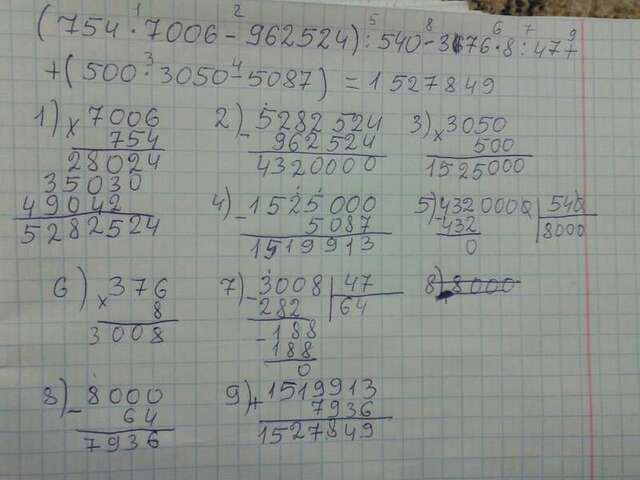 (754·7006-962524):540-376·8:47+
+(500·3050-5087)=1527849
1) × 7006
754
28024
35030
49042
5282524
2) - 5282524
962524
4320000
3) × 3050
500
1525000
4) - 1525000
5087
1519913
5) 4320000 | 540
-432 | 8000
0
6) × 376
8
3008
7) - 3008 | 47
282 | 64
- 188
188
0
8) 8000
8) - 8000
64
7936
9) + 1519913
7936
1527849